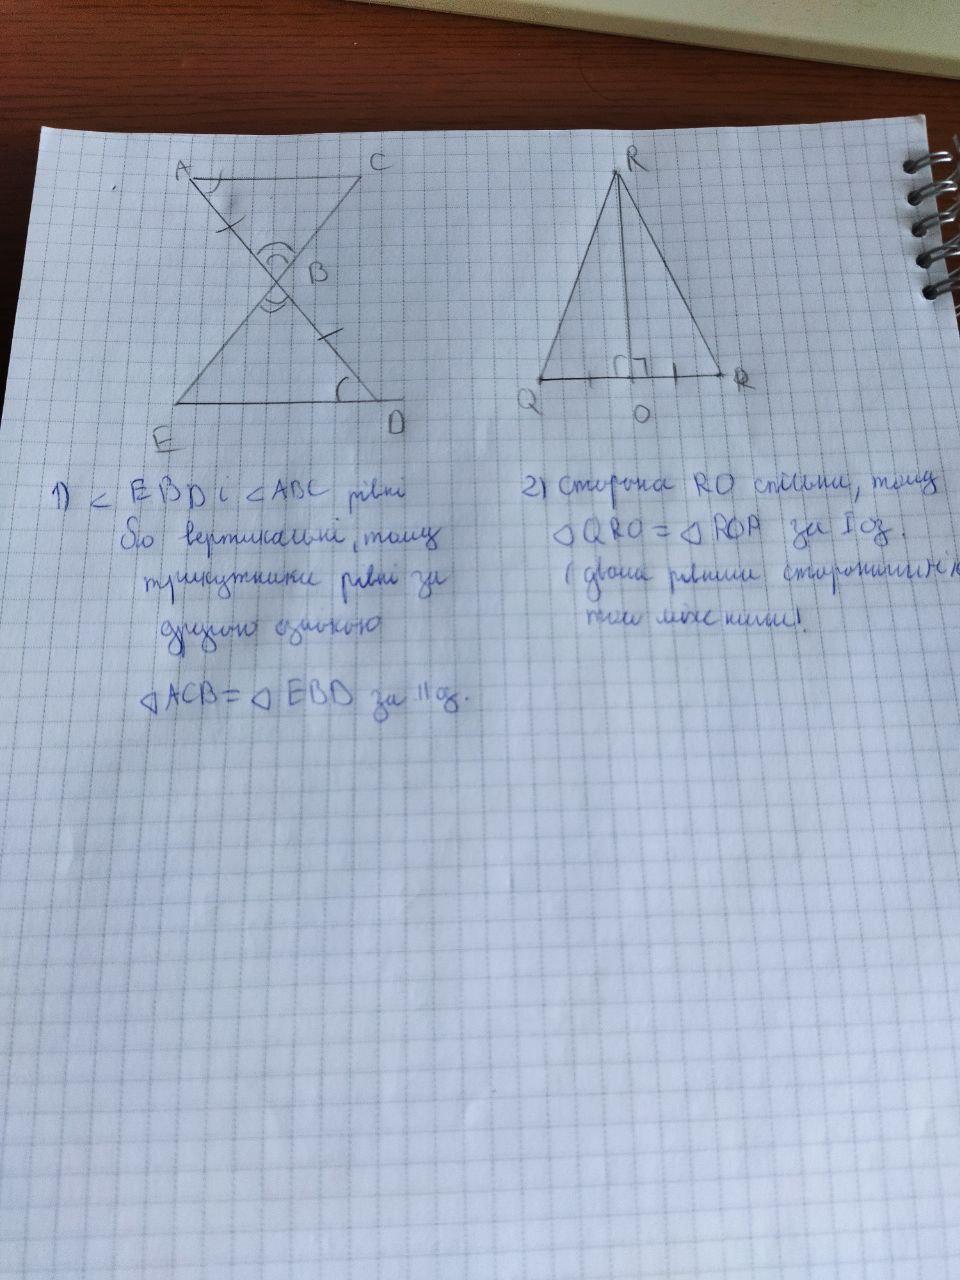 A C
B
E D
R
Q O R
1) < EBD і < ABC рівні
бо вертикальні, тому
трикутники рівні за
другою ознакою
△ ACB = △ EBD за II оз.
2) Сторона RO спільна, тому
△ QRO = △ ROP за I оз.
(двома рівними сторонами і к
том між ними).